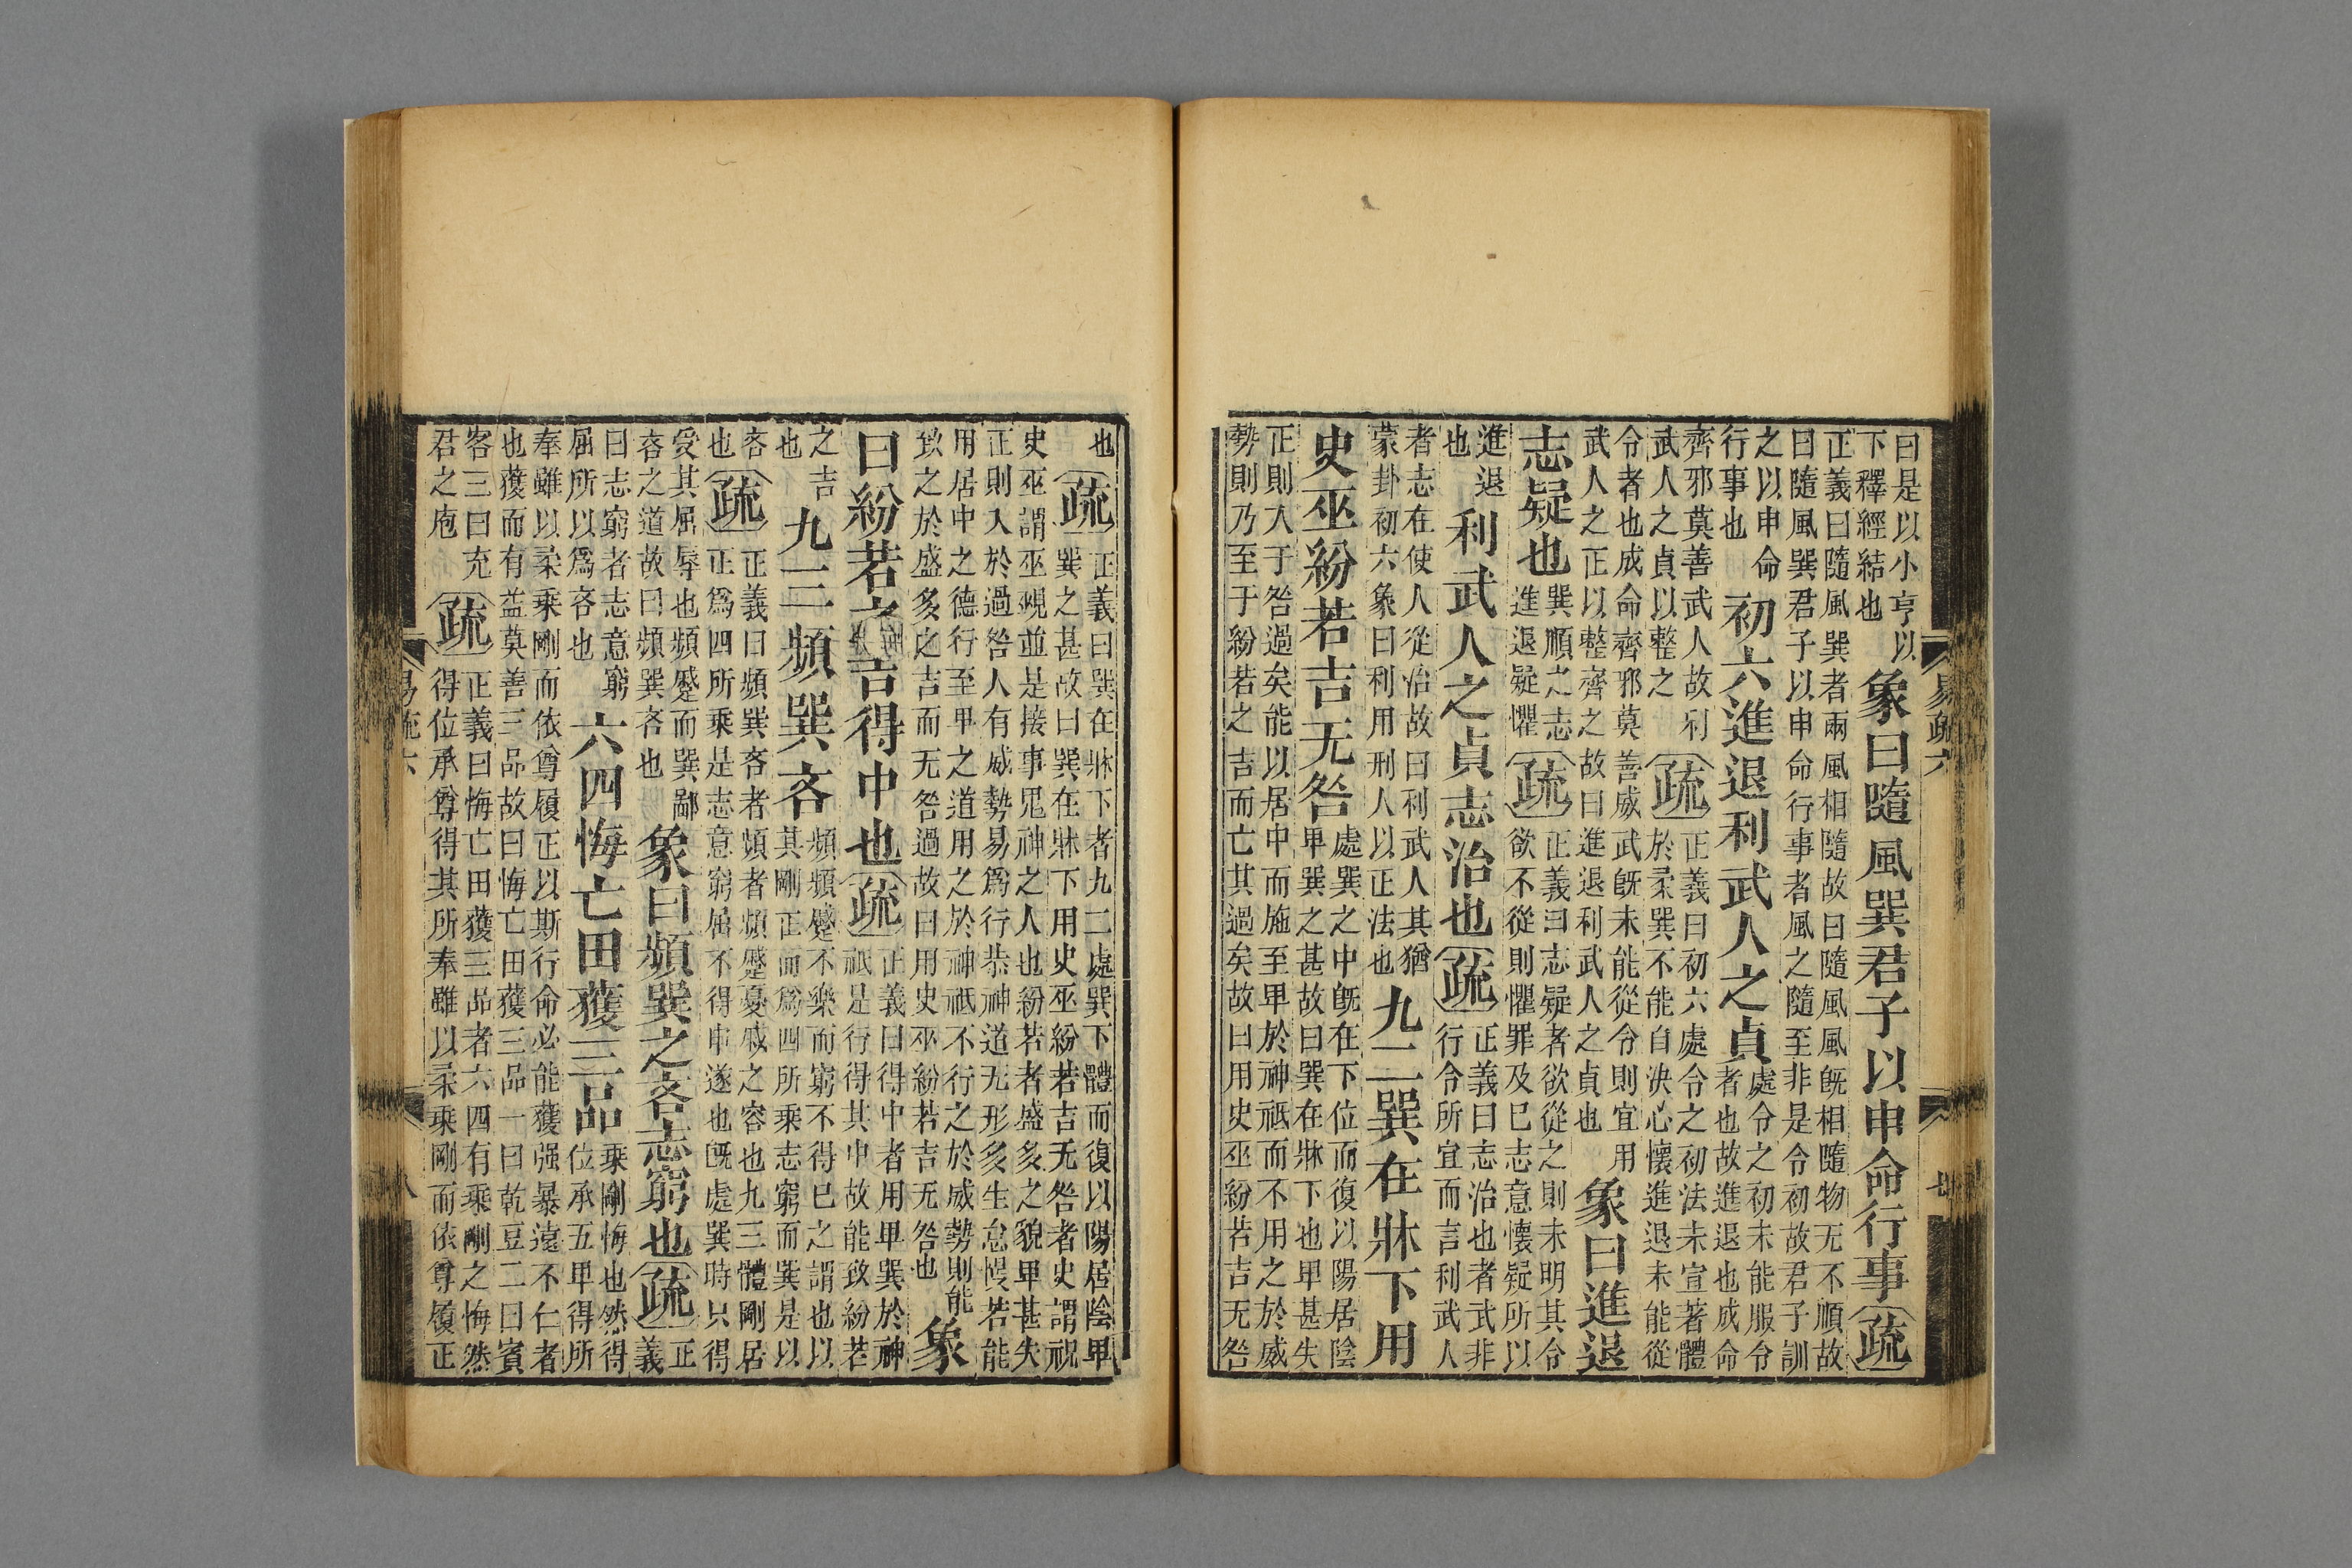 易疏六
七
曰是以小亨以
下釋經結也
象曰隨風巽君子以申命行事
疏
正義曰隨風巽者兩風相隨故曰隨風風旣相隨物无不順故
曰隨風巽君子以申命行事者風之隨至非是令初故君子訓
之以申命
行事也
初六進退利武人之貞
處令之初未能服令
者也故進退也成命
齊邪莫善武人故利
武人之貞以整之
疏
正義曰初六處令之初法未宣著體
於柔巽不能自決心懷進退未能從
令者也成命齊邪莫善威武旣未能從令則宜用
武人之正以整齊之故曰進退利武人之貞也
象曰進退
志疑也
巽順之志
進退疑懼
疏
正義曰志疑者欲從之則未明其令
欲不從則懼罪及已志意懷疑所以
進退
也
利武人之貞志治也
疏
正義曰志治也者武非
行令所宜而言利武人
者志在使人從治故曰利武人其猶
蒙卦初六象曰利用刑人以正法也
九二巽在牀下用
史巫紛若吉无咎
處巽之中旣在下位而復以陽居陰
卑巽之甚故曰巽在牀下也卑甚失
正則入于咎過矣能以居中而施至卑於神祇而不用之於威
勢則乃至于紛若之吉而亡其過矣故曰用史巫紛若吉无咎
也
疏
正義曰巽在牀下者九二處巽下體而復以陽居陰卑
巽之甚故曰巽在牀下用史巫紛若吉无咎者史謂祝
史巫謂巫覡並是接事鬼神之人也紛若者盛多之貌卑甚失
正則入於過咎人有威勢易爲行恭神道无形多生怠慢若能
用居中之德行至卑之道用之於神祇不行之於威勢則能
致之於盛多之吉而无咎過故曰用史巫紛若吉无咎也
象
曰紛若之吉得中也
疏
正義曰得中者用卑巽於神
祇是行得其中故能致紛若
之吉
也
九三頻巽吝
頻頻蹙不樂而窮不得已之謂也以
其剛正而爲四所乘志窮而巽是以
吝
也
疏
正義曰頻巽吝者頻者頻蹙憂戚之容也九三體剛居
正爲四所乘是志意窮屈不得申遂也旣處巽時只得
受其屈辱也頻蹙而巽鄙
吝之道故曰頻巽吝也
象曰頻巽之吝志窮也
疏
正
義
曰志窮者志意窮
屈所以爲吝也
六四悔亡田獲三品
乘剛悔也然得
位承五卑得所
奉雖以柔乘剛而依尊履正以斯行命必能獲强暴遠不仁者
也獲而有益莫善三品故曰悔亡田獲三品一曰乾豆二曰賓
客三曰充
君之庖
疏
正義曰悔亡田獲三品者六四有乘剛之悔然
得位承尊得其所奉雖以柔乘剛而依尊履正
易疏六
八